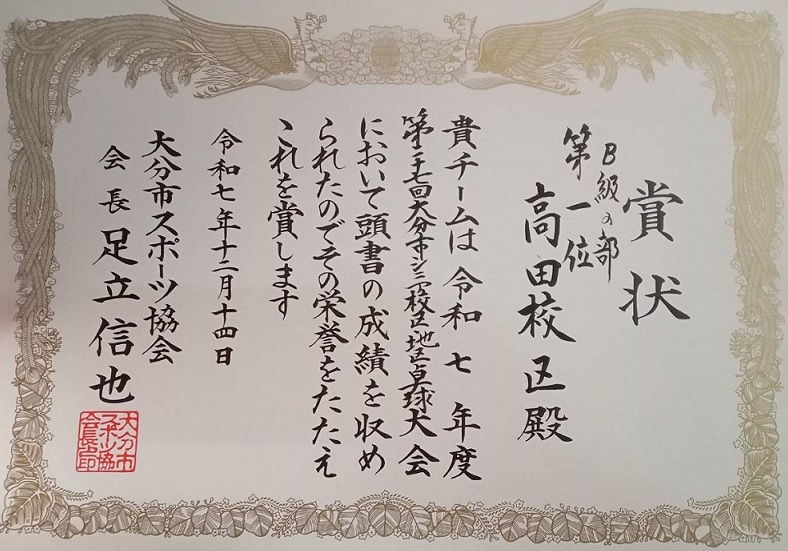 賞状
B級の部
第一位
高田校区殿
貴チームは令和七年度
第二十七回大分市シニア校区地区卓球大会
において頭書の成績を収め
られたのでその栄誉をたたえ
これを賞します
令和七年十二月十四日
大分市スポーツ協会
会長 足立信也
大分市
スポーツ協
会長之印